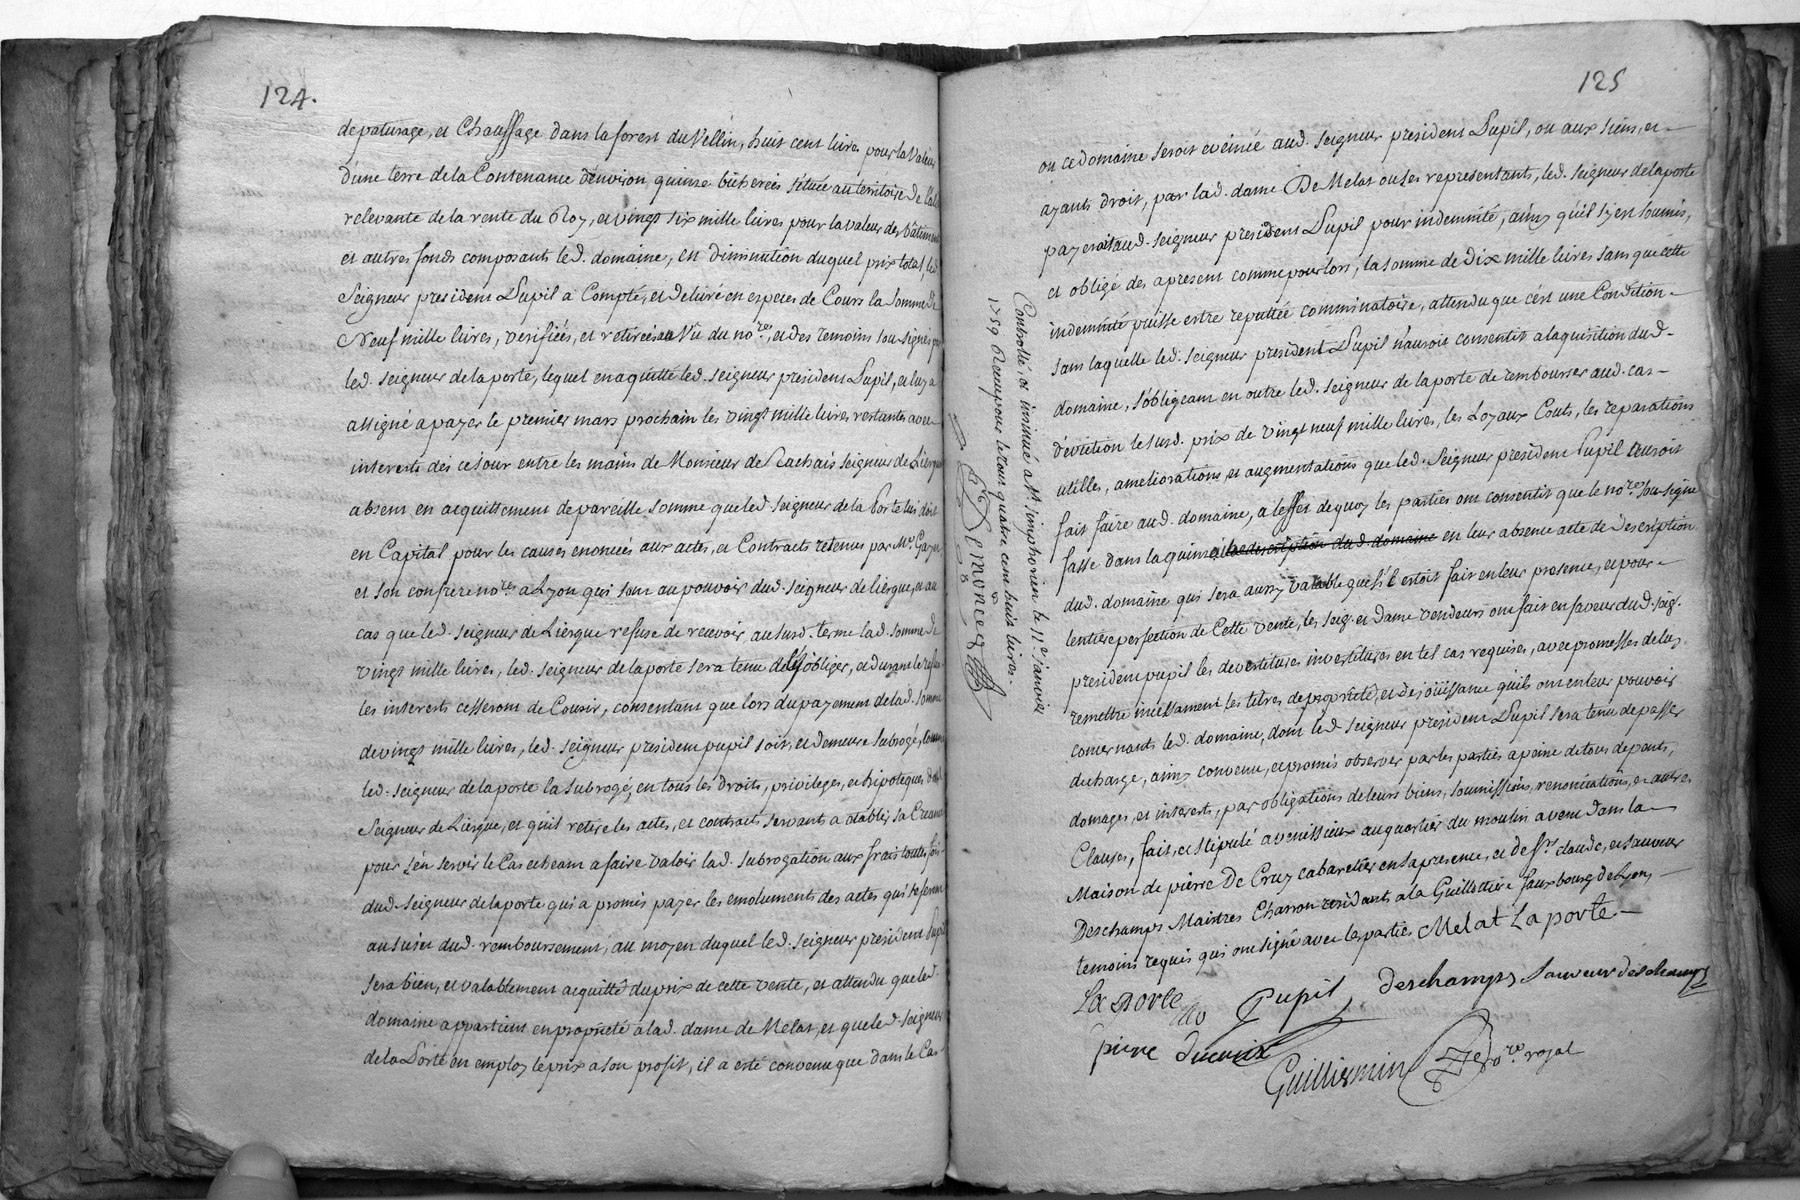 124.
de paturage, et Chauffage dans la forest du Vellin, huit cent livres pour la Valeur
d'une terre de la Contenance d'environ quinze bicherées sétuée au territoire de
relevante de la rente du Roy, et vingt six mille livres pour la valeur des bâtiments
et autres fonds composants led. domaine, en diminution duquel prix total led.
Seigneur president Pupil a Compté, et delivré en especes de Cours la somme de
Neuf mille livres, verifiées, et retirées au Vû du no.re, et des temoins sousignés par
led. seigneur de la porte, lequel en a quitté led. seigneur president Pupil, et luy a
assigné a payer le premier mars prochain les vingt mille livres restantes avec
interests dès ce jour entre les mains de Monsieur de Rachais seigneur de Liergue
absent en acquittement de pareille somme que led seigneur de la Porte lui doit
en Capital pour les causes enoncées aux actes, et Contracts retenus par Me. Gayen
et son confrere no.res a Lyon qui sont au pouvoir dud. seigneur de liergue, et au
cas que led. seigneur de Liergue refuse de recevoir au susd. terme lad. somme de
vingt mille livres, led. seigneur de la porte sera tenu de l'y obliger, et durant le refus
les interests cesseront de Courir, consentant que lors du payement de lad. somme
de vingt mille livres, led. seigneur president pupil soit, et demeure subrogé, comme
led. seigneur de la porte la subrogé, en tous les droits, privileges, et hipoteques dud.
Seigneur de Liergue, et qu'il retire les actes, et contracts servant a établir sa Creance
pour s'en servir le Cas echeant a faire valoir lad. subrogation aux frais toutes fois
dud. seigneur de la porte qui a promis payer les emoluments des actes qui se feront
au sujet dud. remboursement, au moyen duquel led. seigneur president Pupil
sera bien, et valablement acquitté du prix de cette vente, et attendu que led.
domaine appartient en proprieté a lad. dame de Melat, et que led. seigneur
de la Porte en employ le prix a son profit, il a esté convenu que dans le Cas
Controllé, et insinué a St. simphorien le 11e. janvier
1759 Recu pour le tout quatre cent huit livres.
125
ou ce domaine seroit evéincé aud. seigneur president Pupil, ou aux siens, et
ayants droit, par lad. dame De Melat ou ses representants, led. seigneur de la porte
payeroit aud. seigneur president Pupil pour indemnité, ainsy qu'il s'y en soumis,
et obligé des apresent comme pour lors, la somme de dix mille livres sans que cette
indemnité puisse estre reputtée comminatoire, attendu que c'est une Condition
sans laquelle led. seigneur president Pupil n'auroit consentit a laquisition dud.
domaine, s'obligeant en outre led. seigneur de la porte de rembourser aud. cas
d'eviction le susd. prix de vingt neuf mille livres, les Loyaux Couts, les reparations
utilles, ameliorations, et augmentations que led. seigneur president Pupil auroit
fait faire aud. domaine, a l'effet dequoy les parties ont consentit que le no.re sousigné
fasse dans la quinzaine en leur absence acte de description
dud. domaine qui sera aussy valable que s'il estoit fait en leur presence, et pour
lentiere perfection de Cette vente, les seig. et Dame vendeurs ont fait en faveur dud. seig.
president pupil les devestitures investitures en tel cas requises, avec promesses de luy
remettre incessament les titres de proprieté, et de jouissance qu'ils ont en leur pouvoir
concernants led. domaine, dont led. seigneur president Pupil sera tenu de passer
decharge, ainsy convenu, et promis observer par les parties a peine de tous depents,
domages, et interests, par obligations de leurs biens, soumissions, renonciations, et autres
Clauses, fait, et stipulé a venissieux au quartier du moulin a vent dans la
Maison de pierre De Cruy cabaretier en sa presence, et de Srs. claude, et sauveur
Deschamps Maistres Charron residants a la Guillottiere fauxbourg de Lyon,
temoins requis qui ont signé avec les parties Melat La porte
La porte Pupil deschamps sauveur deschamps
pierre
Guilliermin no.re royal